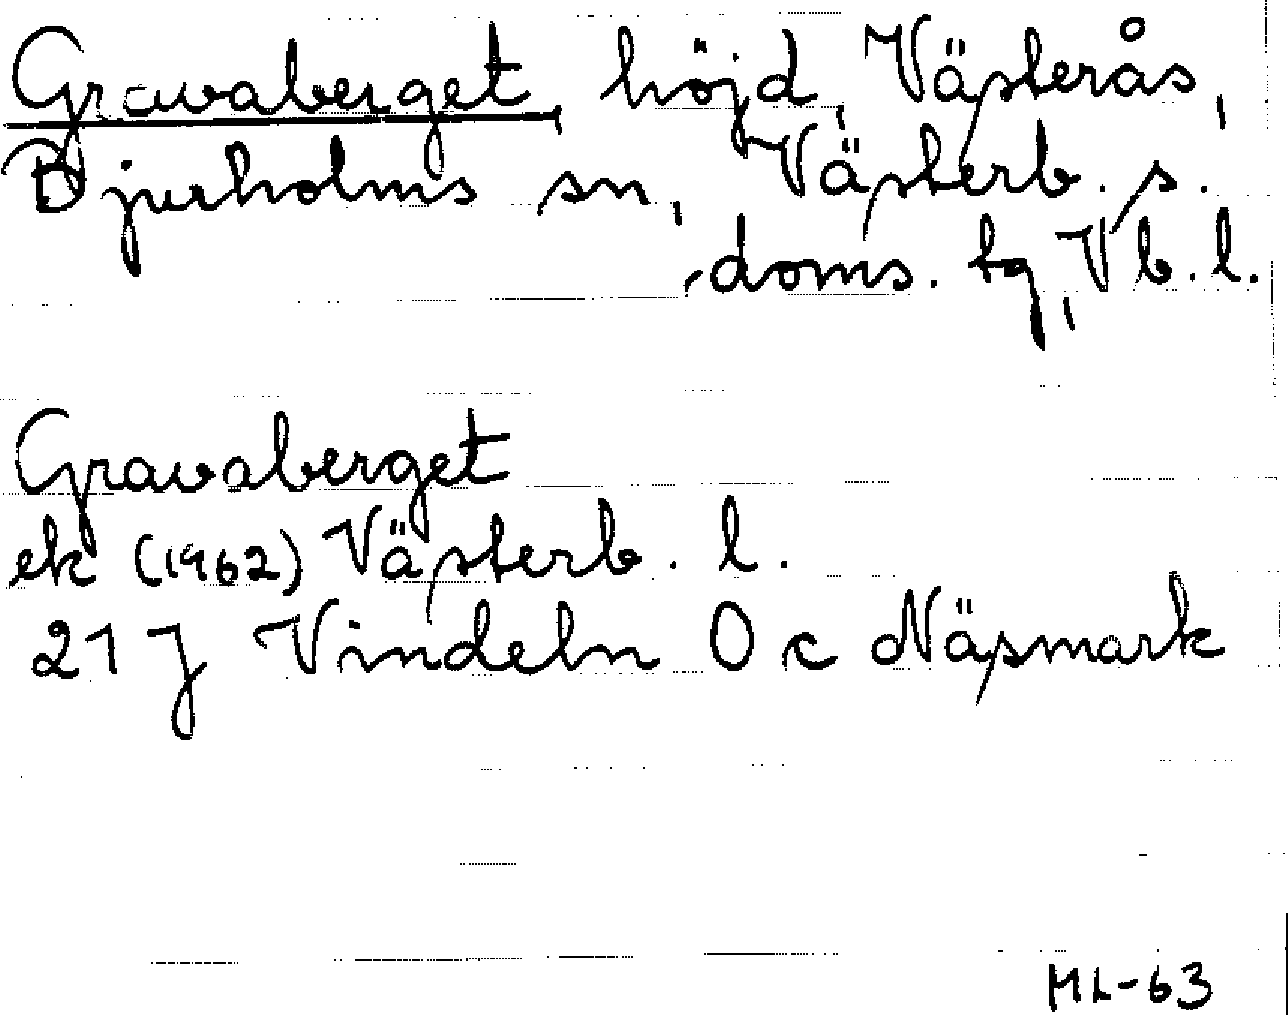 Gravaberget, höjd, Västerås,
Bjurholms sn, Västerb. s.
doms. tg, Vb. l.
Gravaberget
ek (1962) Västerb. l.
21 J Vindeln 0 c Näsmark
ML-63